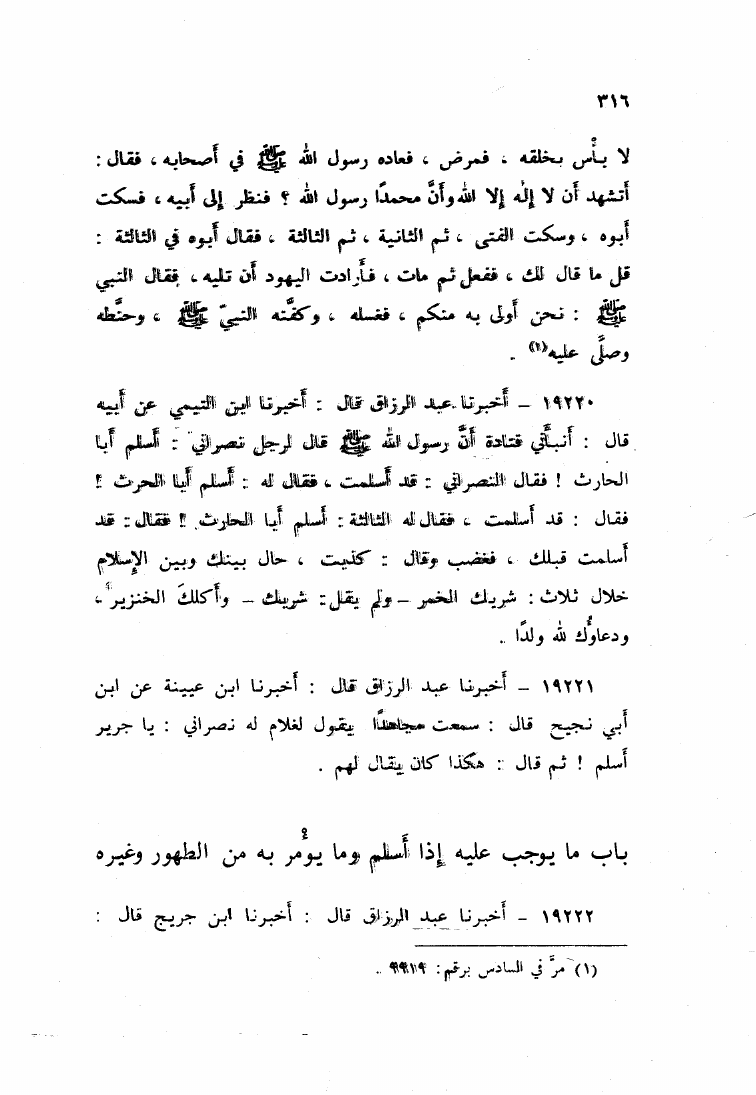 ٣١٦
لا بأْس بخلقه ، فمرض ، فعاده رسول الله ﷺ في أصحابه ، فقال :
أتشهد أن لا إلٰه إلا الله وأنَّ محمدًا رسول الله ؟ فنظر إلى أبيه ، فسكت
أبوه ، وسكت الفتى ، ثم الثانية ، ثم الثالثة ، فقال أبوه في الثالثة :
قل ما قال لك ، ففعل ثم مات ، فأرادت اليهود أن تليه ، فقال النبي
ﷺ : نحن أولى به منكم ، فغسله ، وكفَّنه النبيّ ﷺ ، وحنَّطه
وصلَّى عليه(١) .
١٩٢٢٠ – أخبرنا عبد الرزاق قال : أخبرنا ابن التيمي عن أبيه
قال : أنبأني قتادة أنَّ رسول الله ﷺ قال لرجل نصراني : أسلم أبا
الحارث ! فقال النصراني : قد أسلمت ، فقال له : أسلم أبا الحرث !
فقال : قد أسلمت ، فقال له الثالثة : أسلم أبا الحارث ! فقال : قد
أسلمت قبلك ، فغضب وقال : كذبت ، حال بينك وبين الإسلام
خلال ثلاث : شربك الخمر – ولم يقل : شربك – وأكلك الخنزير ،
ودعاؤك لله ولدًا .
١٩٢٢١ – أخبرنا عبد الرزاق قال : أخبرنا ابن عيينة عن ابن
أبي نجيح قال : سمعت مجاهدًا يقول لغلام له نصراني : يا جرير
أسلم ! ثم قال : هكذا كان يقال لهم .
باب ما يوجب عليه إذا أسلم وما يؤمر به من الطهور وغيره
١٩٢٢٢ – أخبرنا عبد الرزاق قال : أخبرنا ابن جريج قال :
(١) مرَّ في السادس برقم : ٩٩١٩ .